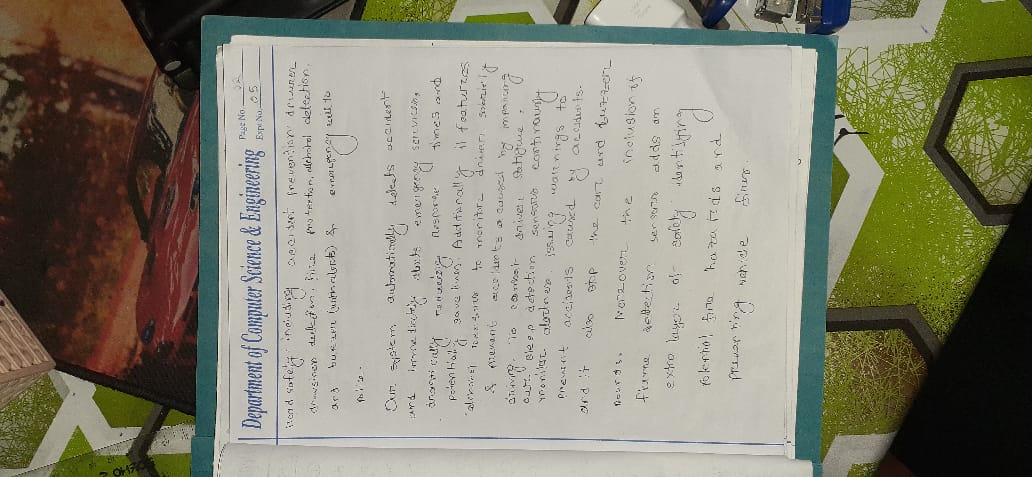 Department of Computer Science & Engineering
Page No. 02
Expt No. 05
Road safety including accident prevention drunken
drowsiness detection, fire protection alcohol detection,
and buzzer (when alerts) & emergency call to
police.
Our system automatically detects accident
and immediately alerts emergency services,
drastically reducing response times and
potentially save lives. Additionally it features
alcohol sensors to monitor driver sobriety
& prevent accidents caused by impaired
driving. To combat driver fatigue,
our sleep detection sensors continuously
monitor alertness, issuing warnings to
prevent accidents caused by accidents.
and it also stop the car and buzzer
Moreover the inclusion of
flame detection sensors adds an
extra layer of safety, identifying
potential fire hazards and
preventing vehicle fires.